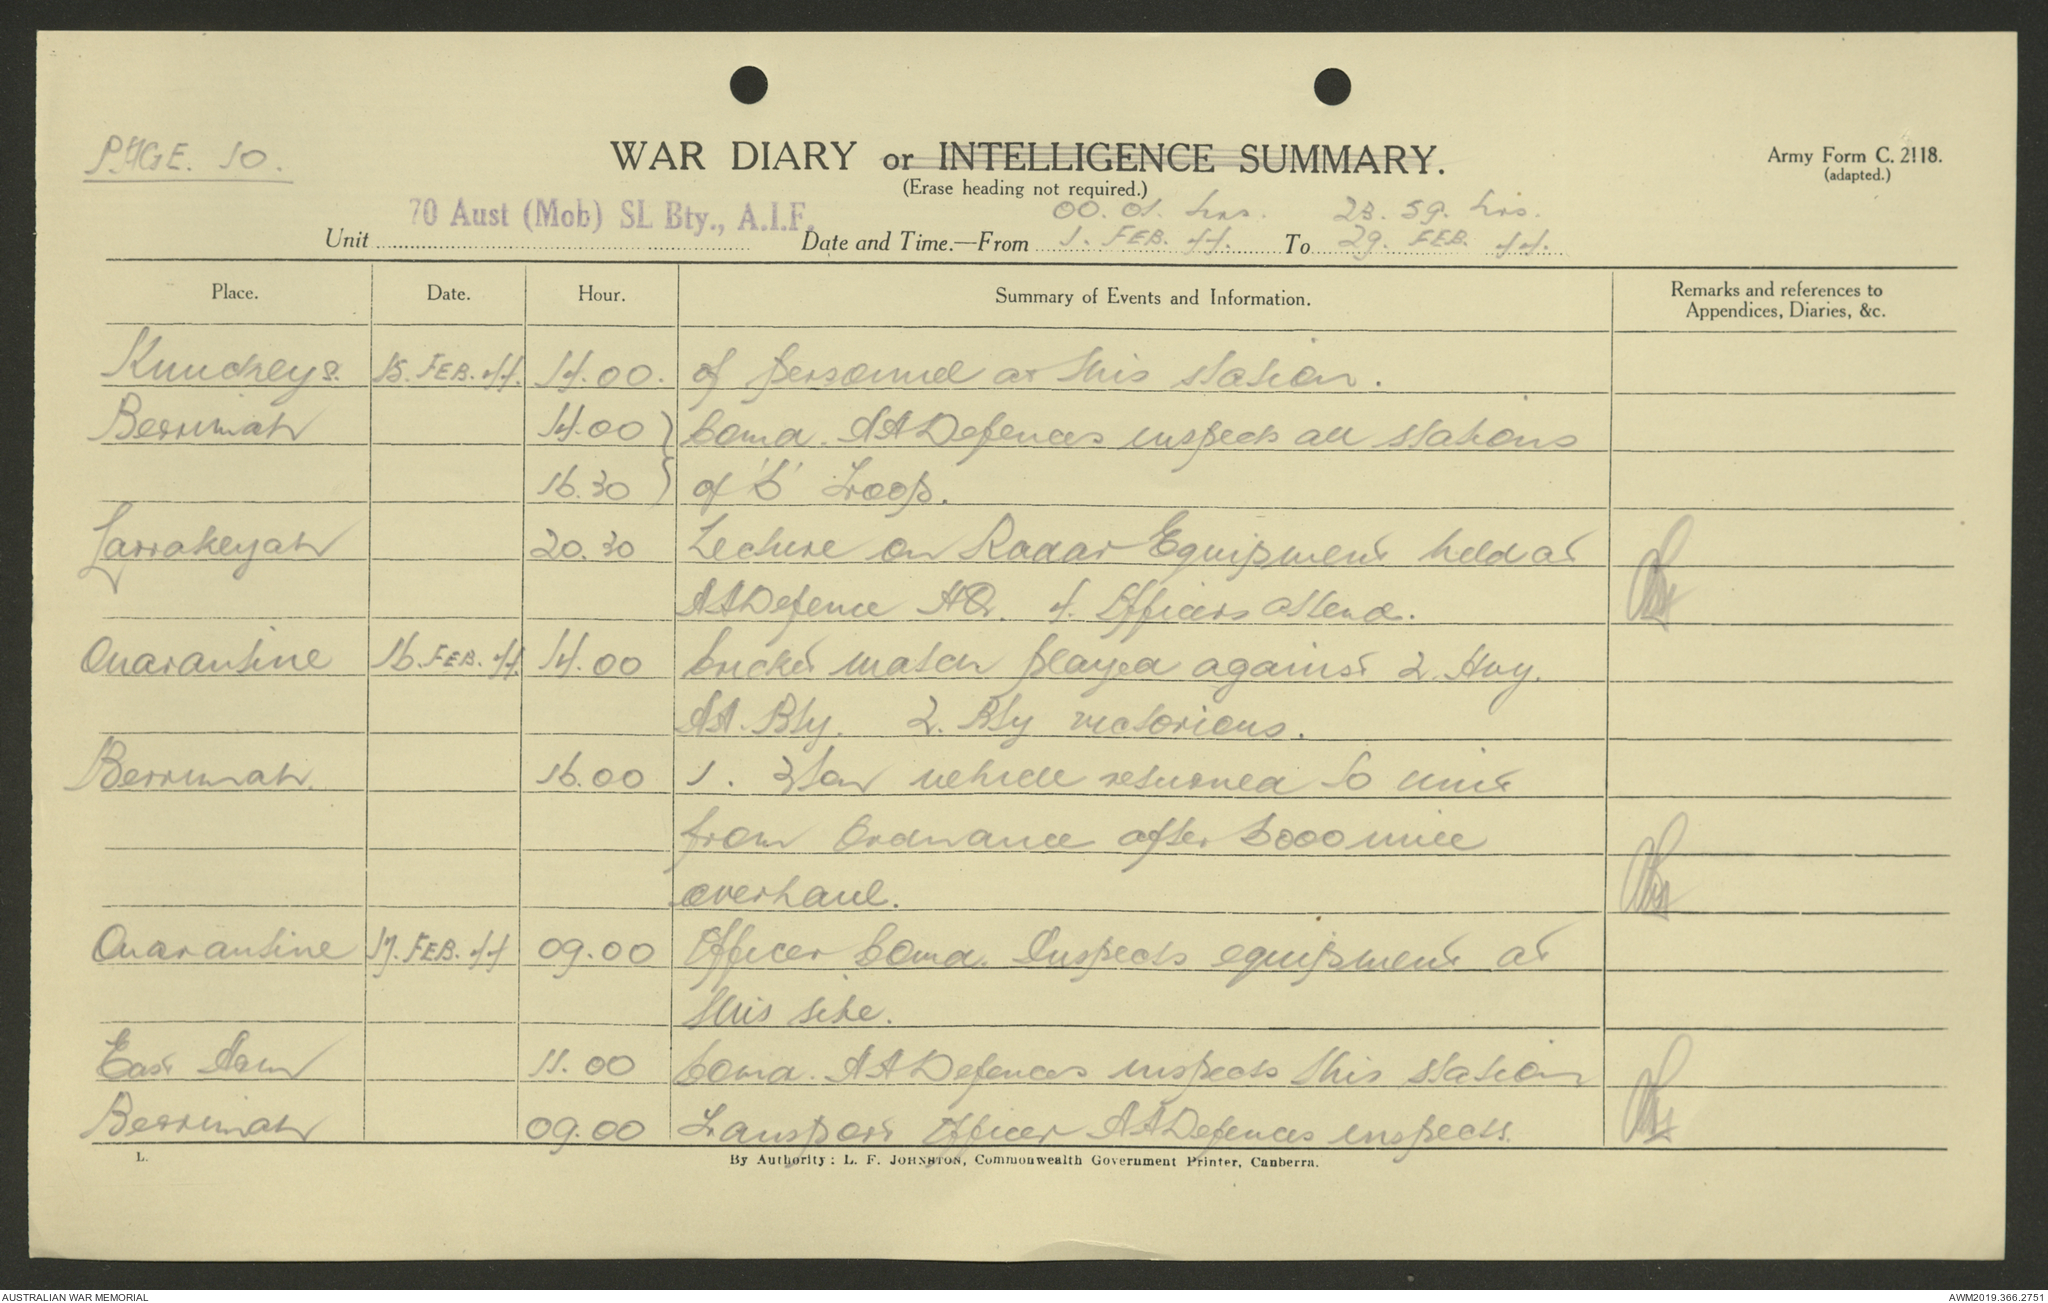 PAGE. 10.
WAR DIARY or INTELLIGENCE SUMMARY.
(Erase heading not required.)
Army Form C. 2118.
(adapted.)
00. 01. hrs. 23. 59. hrs.
Unit 70 Aust (Mob) SL Bty., A.I.F. Date and Time.—From 1. FEB. 44. To 29. FEB. 44.
Place. Date. Hour. Summary of Events and Information. Remarks and references to
Appendices, Diaries, &c.
Knuckeys. 15. FEB. 44. 14.00. of personnel at this station.
Berrimah 14.00 Comd. AADefences inspects all stations
16.30 of 'C' Troop.
Larrakeyah 20.30 Lecture on Radar Equipment held at
AADefence HQ. 4. Officers attend.
Quarantine 16. FEB. 44. 14.00 Cricket match played against 2. Hvy.
AA. Bty. 2. Bty victorious.
Berrimah. 16.00 1. 3ton vehicle returned to unit
from Ordnance after 5000 mile
overhaul.
Quarantine 17. FEB. 44 09.00 Officer Comd. Inspects equipment at
this site.
East Arm 11.00 Comd. AADefences inspects this station
Berrimah 09.00 Transport Officer AADefences inspects.
L.
By Authority: L. F. JOHNSTON, Commonwealth Government Printer, Canberra.
AUSTRALIAN WAR MEMORIAL AWM2019.366.2751